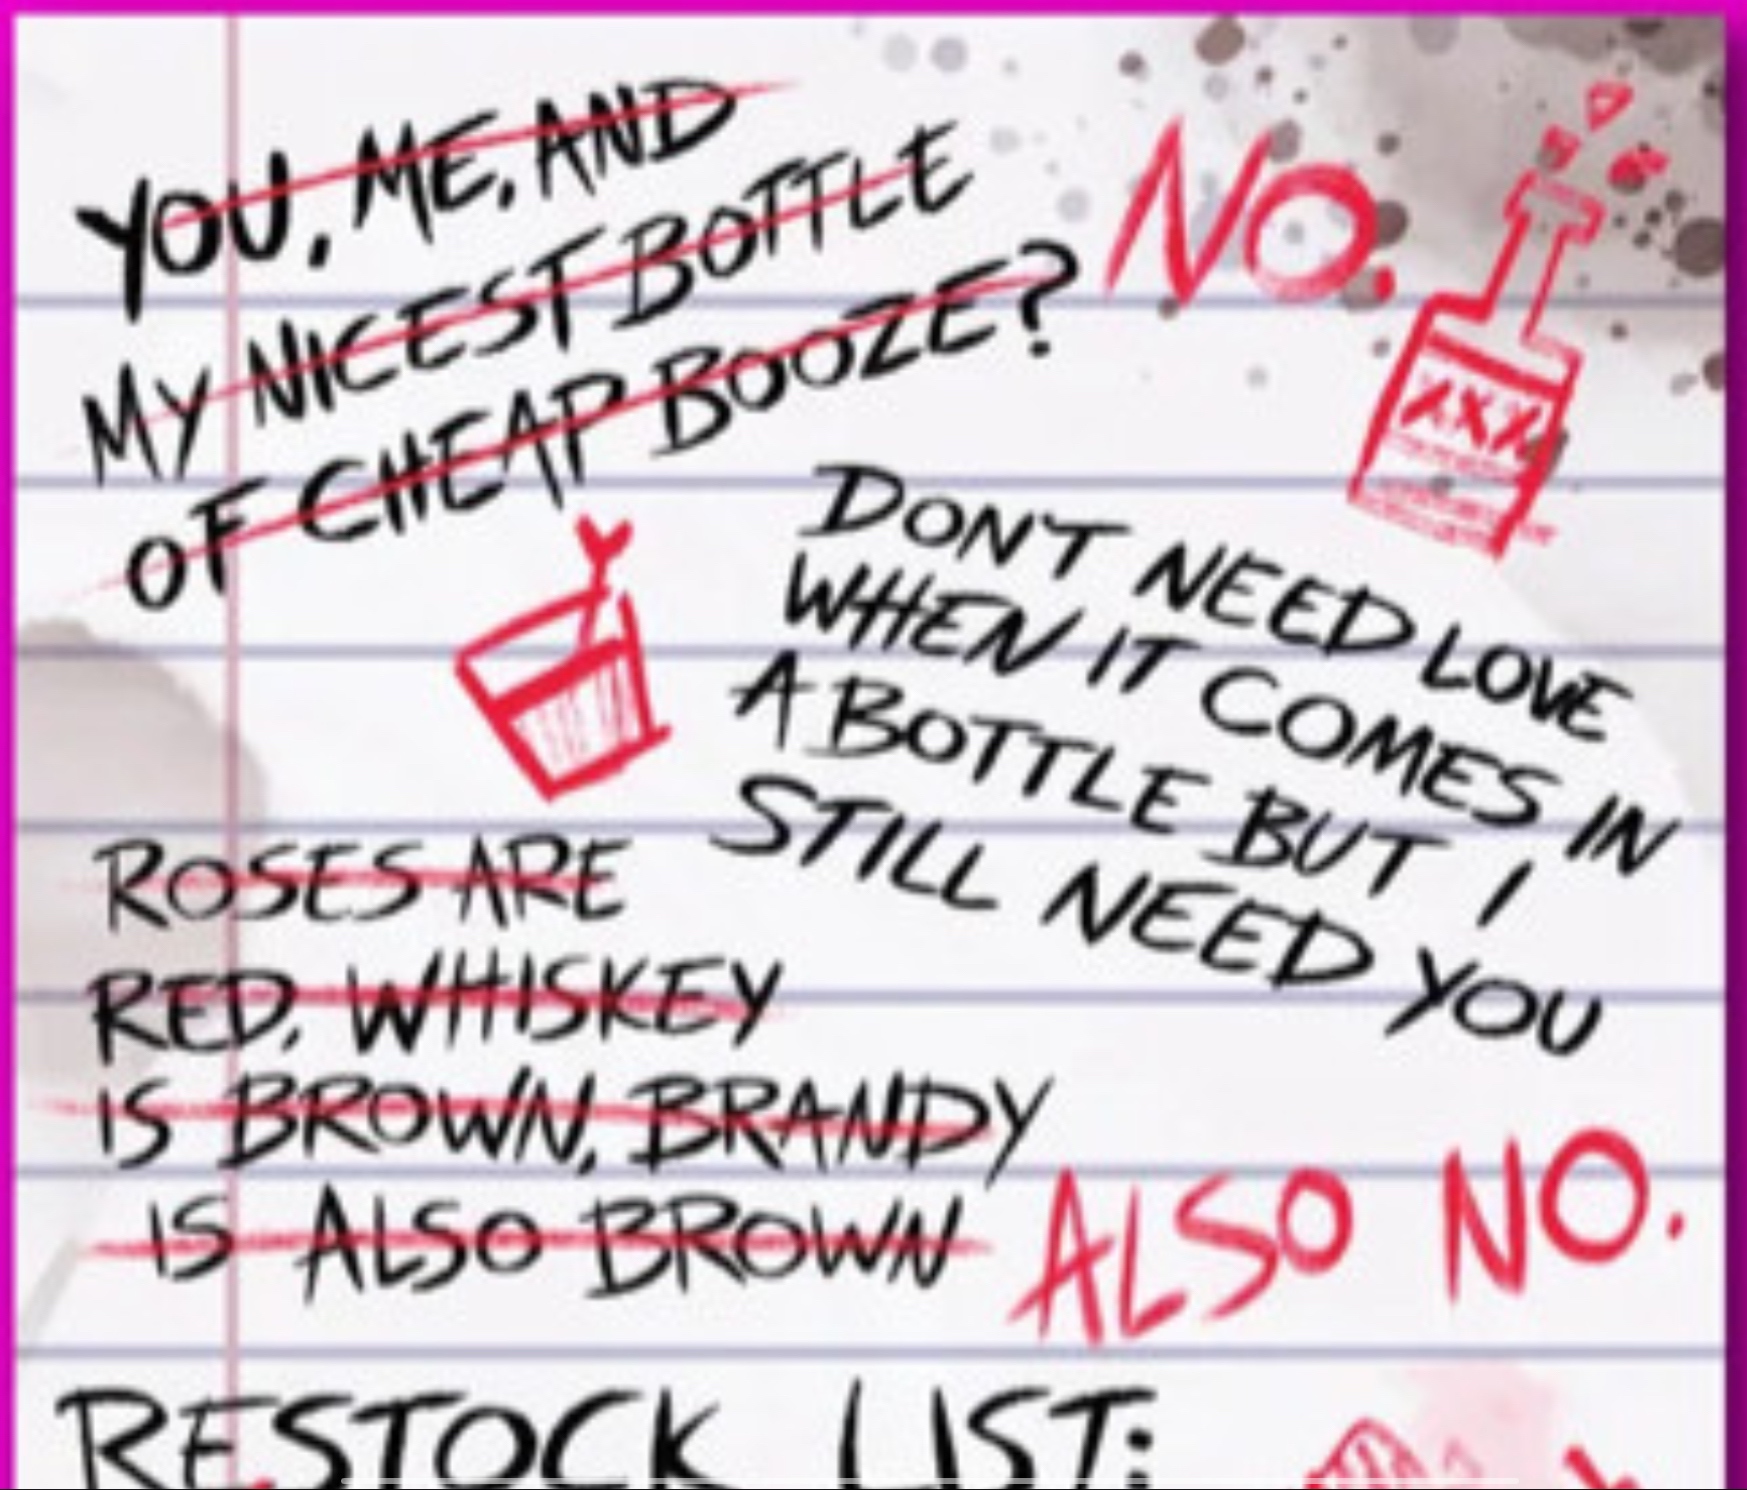 YOU, ME, AND
MY NICEST BOTTLE
OF CHEAP BOOZE?
NO.
XXX
DON'T NEED LOVE
WHEN IT COMES IN
A BOTTLE BUT I
STILL NEED YOU
ROSES ARE
RED, WHISKEY
IS BROWN, BRANDY
IS ALSO BROWN
ALSO NO.
RESTOCK LIST: